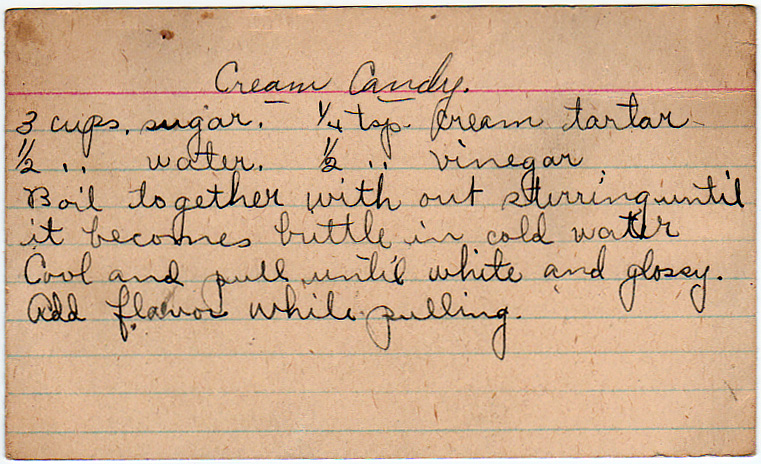 Cream Candy.
3 cups. sugar. 1/4 tsp. cream tartar
1/2 " water. 1/2 " vinegar
Boil together with out stirring until
it becomes brittle in cold water
Cool and pull until white and glossy.
Add flavor while pulling.